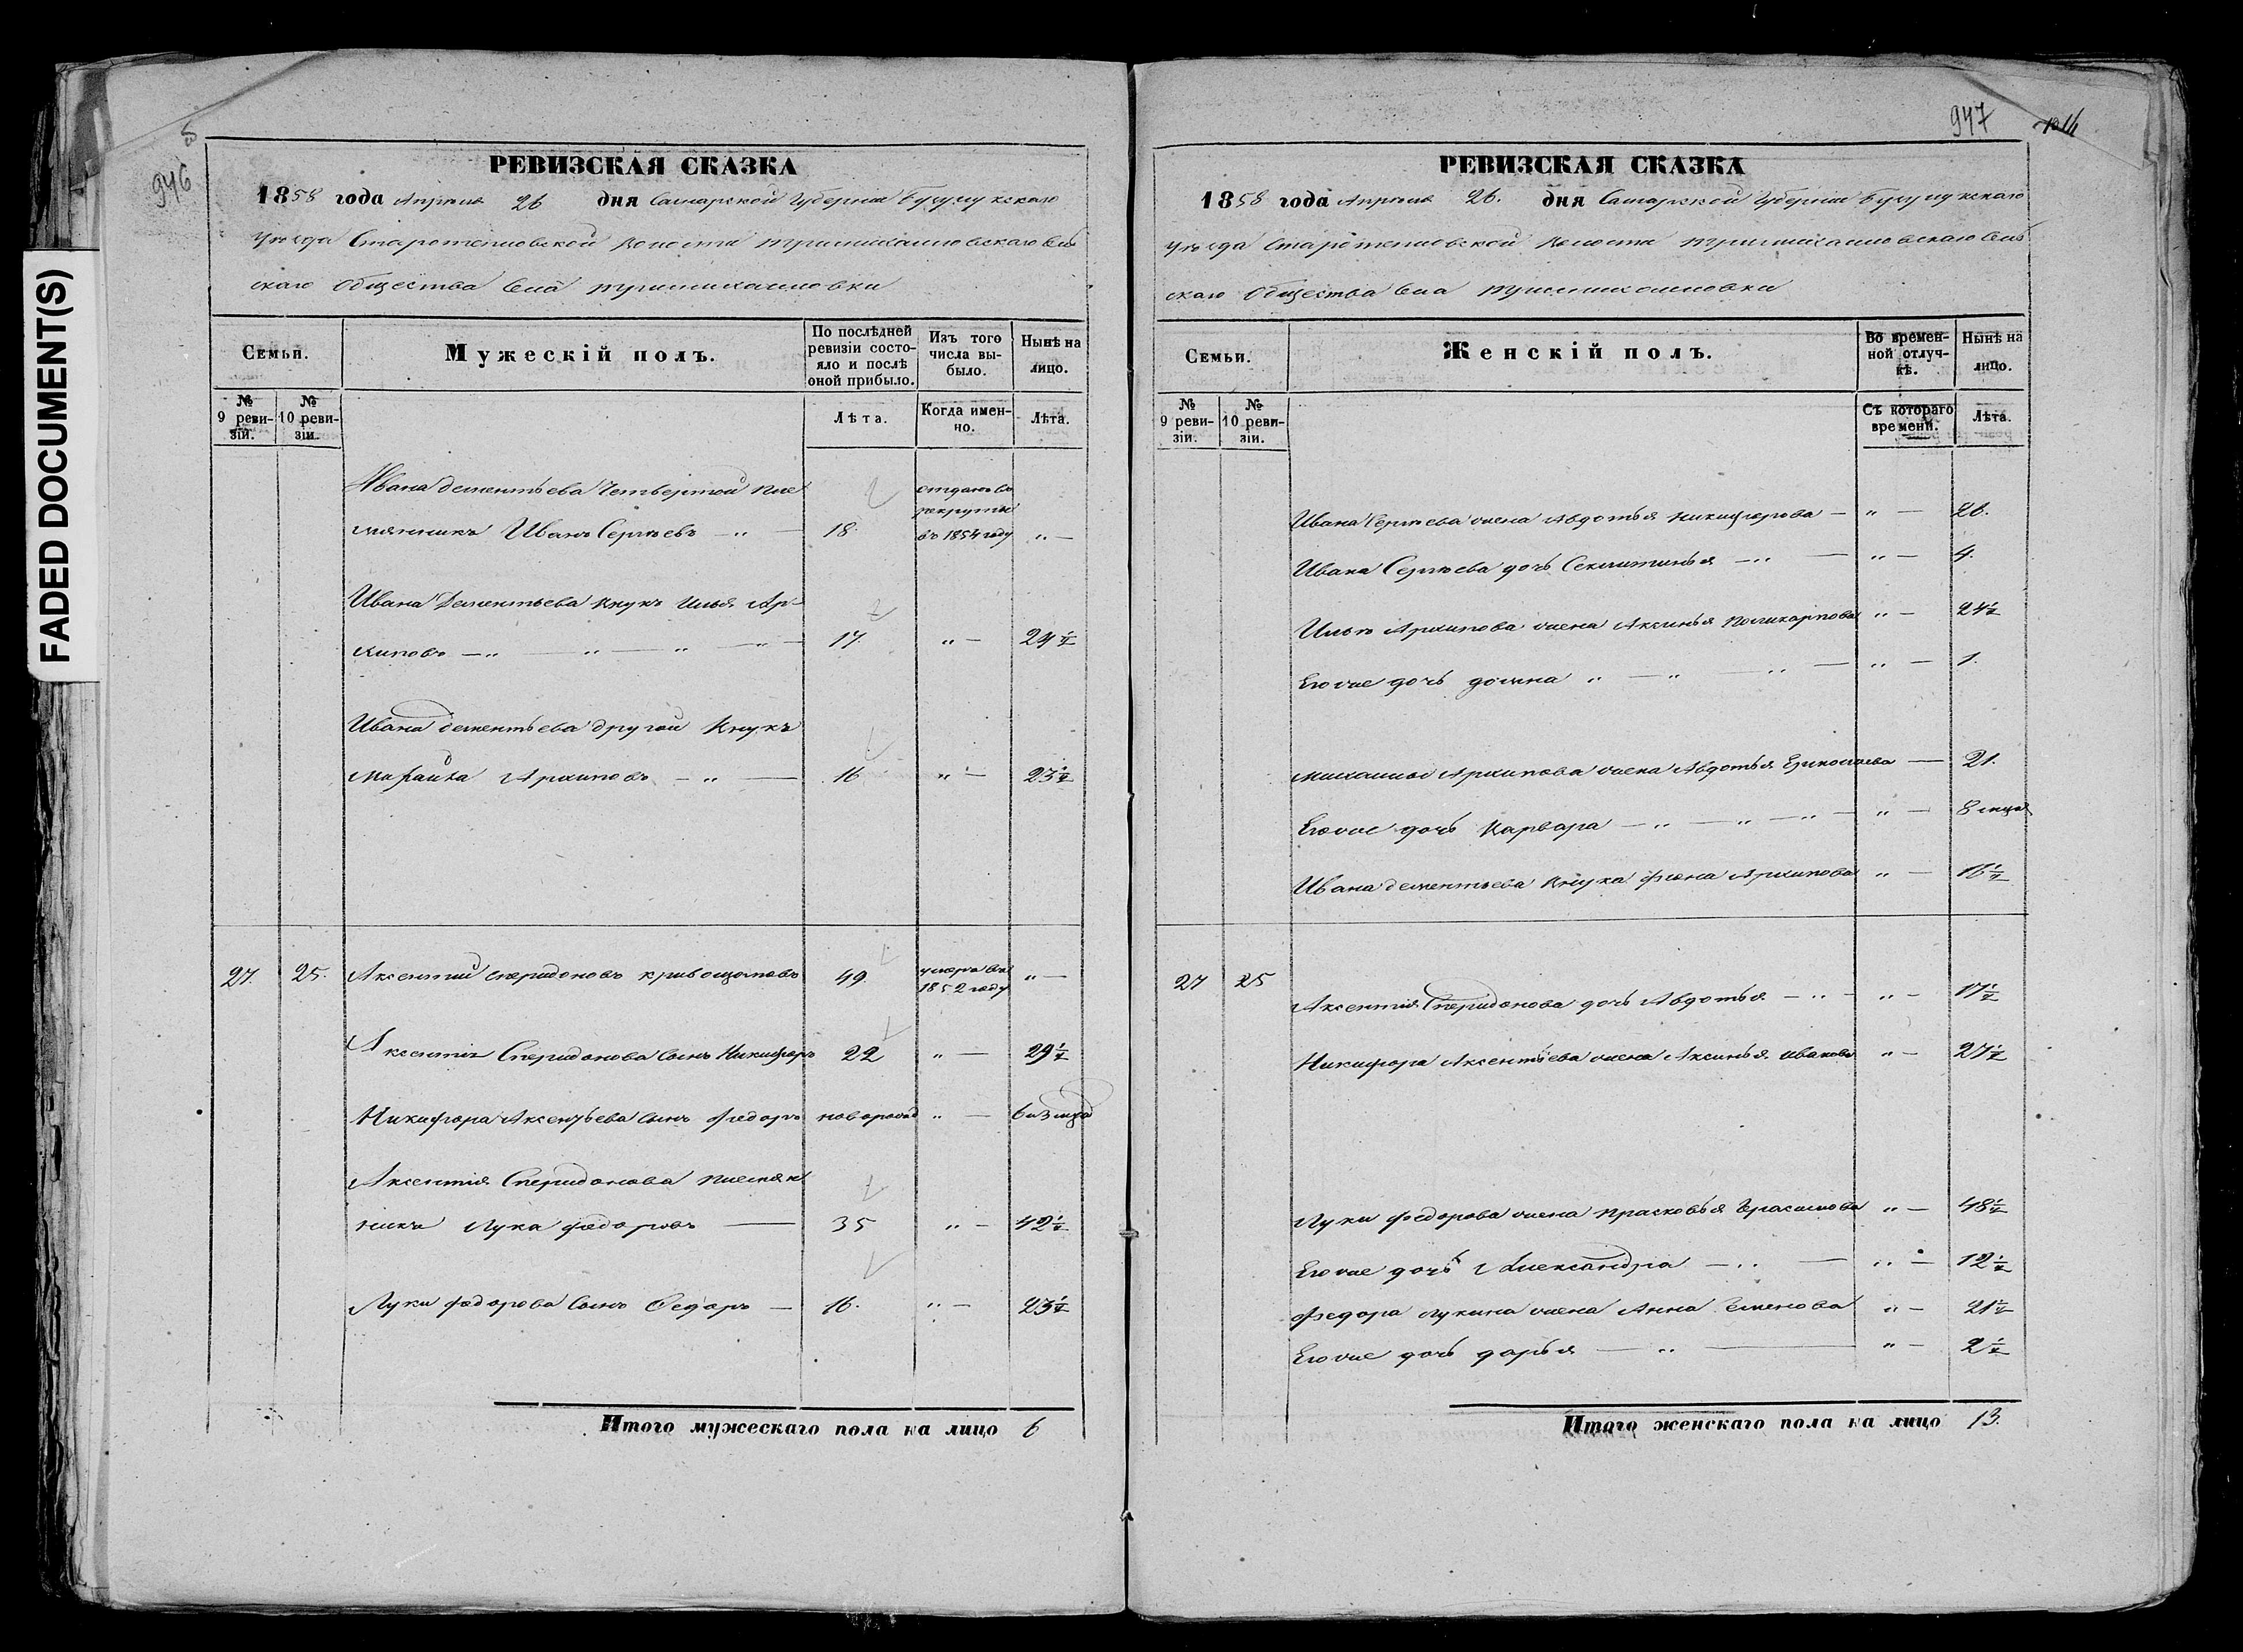 FADED DOCUMENT(S)
946
РЕВИЗСКАЯ СКАЗКА
1858 года Апреля 26 дня Самарской Губернии Бузулукскаго
уезда Старотепловской волости
скаго Общества Села
Семьи.
Мужескій полъ.
По послѣдней ревизіи состояло и послѣ оной прибыло.
Изъ того числа выбыло.
Нынѣ на лицо.
№ 9 ревизіи.
№ 10 ревизіи.
Лѣта.
Когда именно.
Лѣта.
Ивана дементьева Четвертой пле
мянникъ Иванъ Сергѣевъ 18. отданъ въ рекруты въ 1854 году
Ивана Дементьева внукъ Илья Ар-
хиповъ 17 24 ½
Ивана дементьева другой внукъ
Архиповъ 16 23 ½
27. 25. Аксентий спиридоновъ 49. умеръ въ 1852 году
Аксентія Спиридонова сынъ Никифоръ 22 29 ½
Никифора Аксентьева сынъ Федоръ новорожд
Аксентія Спиридонова племян
никъ Лука федоровъ 35 42 ½
Луки федорова сынъ Федоръ 16. 23 ½
Итого мужескаго пола на лицо 6
947
РЕВИЗСКАЯ СКАЗКА
1858 года Апреля 26. дня Самарской Губернии Бузулукскаго
уезда Старотепловской волости
скаго Общества Села
Семьи.
Женскій полъ.
Во временной отлучкѣ.
Нынѣ на лицо.
№ 9 ревизіи.
№ 10 ревизіи.
Съ котораго времени.
Лѣта.
Ивана Сергѣева жена Авдотья Никифорова 26.
Ивана Сергѣева дочь 4.
Ильи Архипова жена Аксинья Поликарпова 24 ½
Его же дочь домна 1.
Архипова жена Авдотья 21.
Его же дочь Варвара 8 мцов
Ивана дементьева внука Архипова 16 ½
27 25
Аксентія Спиридонова дочь Авдотья 17 ½
Никифора Аксентьева жена Аксинья иванова 27 ½
Луки федорова жена прасковья Герасимова 48 ½
Его же дочь Александра 12 ½
Федора лукина жена Анна Семенова 21 ½
Его же дочь дарья 2 ½
Итого женскаго пола на лицо 13.